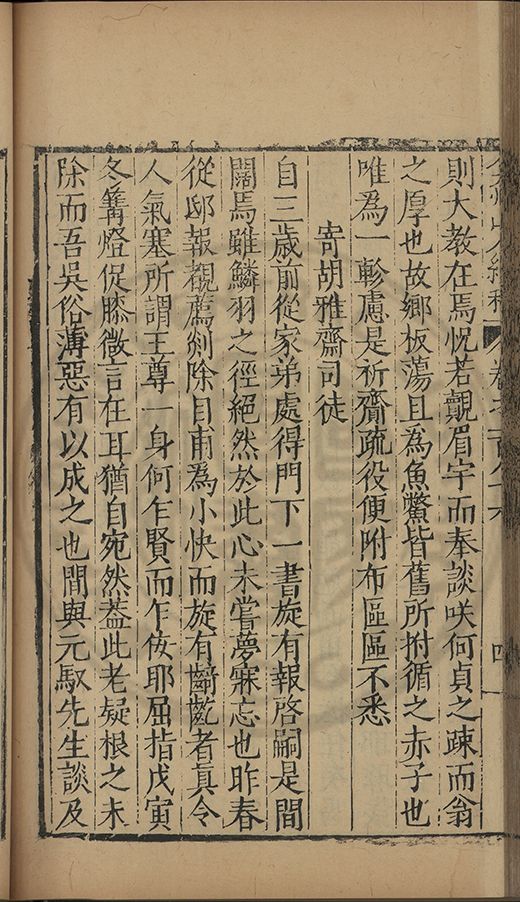 弇州山人續稿 卷之一百八十六 四
則大教在焉恍若覿眉宇而奉談咲何貞之疎而翁
之厚也故鄉板蕩且為魚鱉皆舊所拊循之赤子也
唯為一軫慮是祈齎疏役便附布區區不悉
寄胡雅齋司徒
自三歲前從家弟處得門下一書旋有報啓嗣是間
闊焉雖鱗羽之徑絕然於此心未嘗夢寐忘也昨春
從邸報觀薦剡除目甫為小快而旋有齮齕者真令
人氣塞所謂王尊一身何乍賢而乍佞耶屈指戊寅
冬篝燈促膝微言在耳猶自宛然葢此老疑根之未
除而吾吳俗薄惡有以成之也間與元馭先生談及